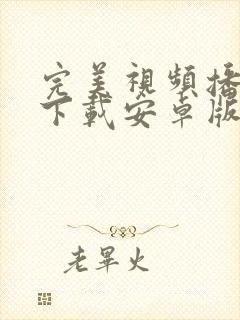 完美視頻播
下載安卓版
老畢火